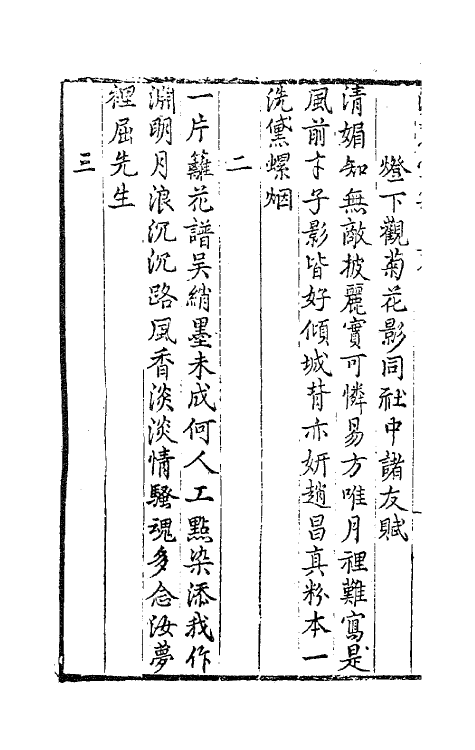 燈下觀菊花影同社中諸友賦
清媚知無敵披麗實可憐易方唯月裡難寫是
風前才子影皆好傾城背亦妍趙昌真粉本一
洗黛螺烟
二
一片籬花譜吳綃墨未成何人工點染添我作
淵明月浪沉沉路風香淡淡情騷魂多念汝夢
裡屈先生
三